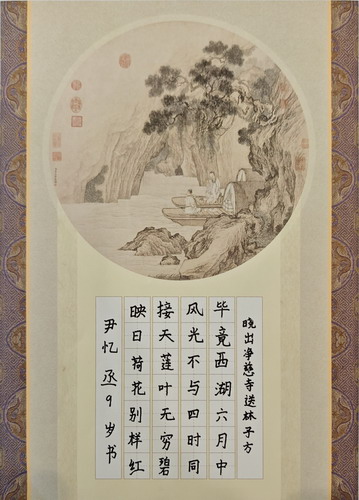 晓出净慈寺送林子方
毕竟西湖六月中
风光不与四时同
接天莲叶无穷碧
映日荷花别样红
尹忆丞9岁书